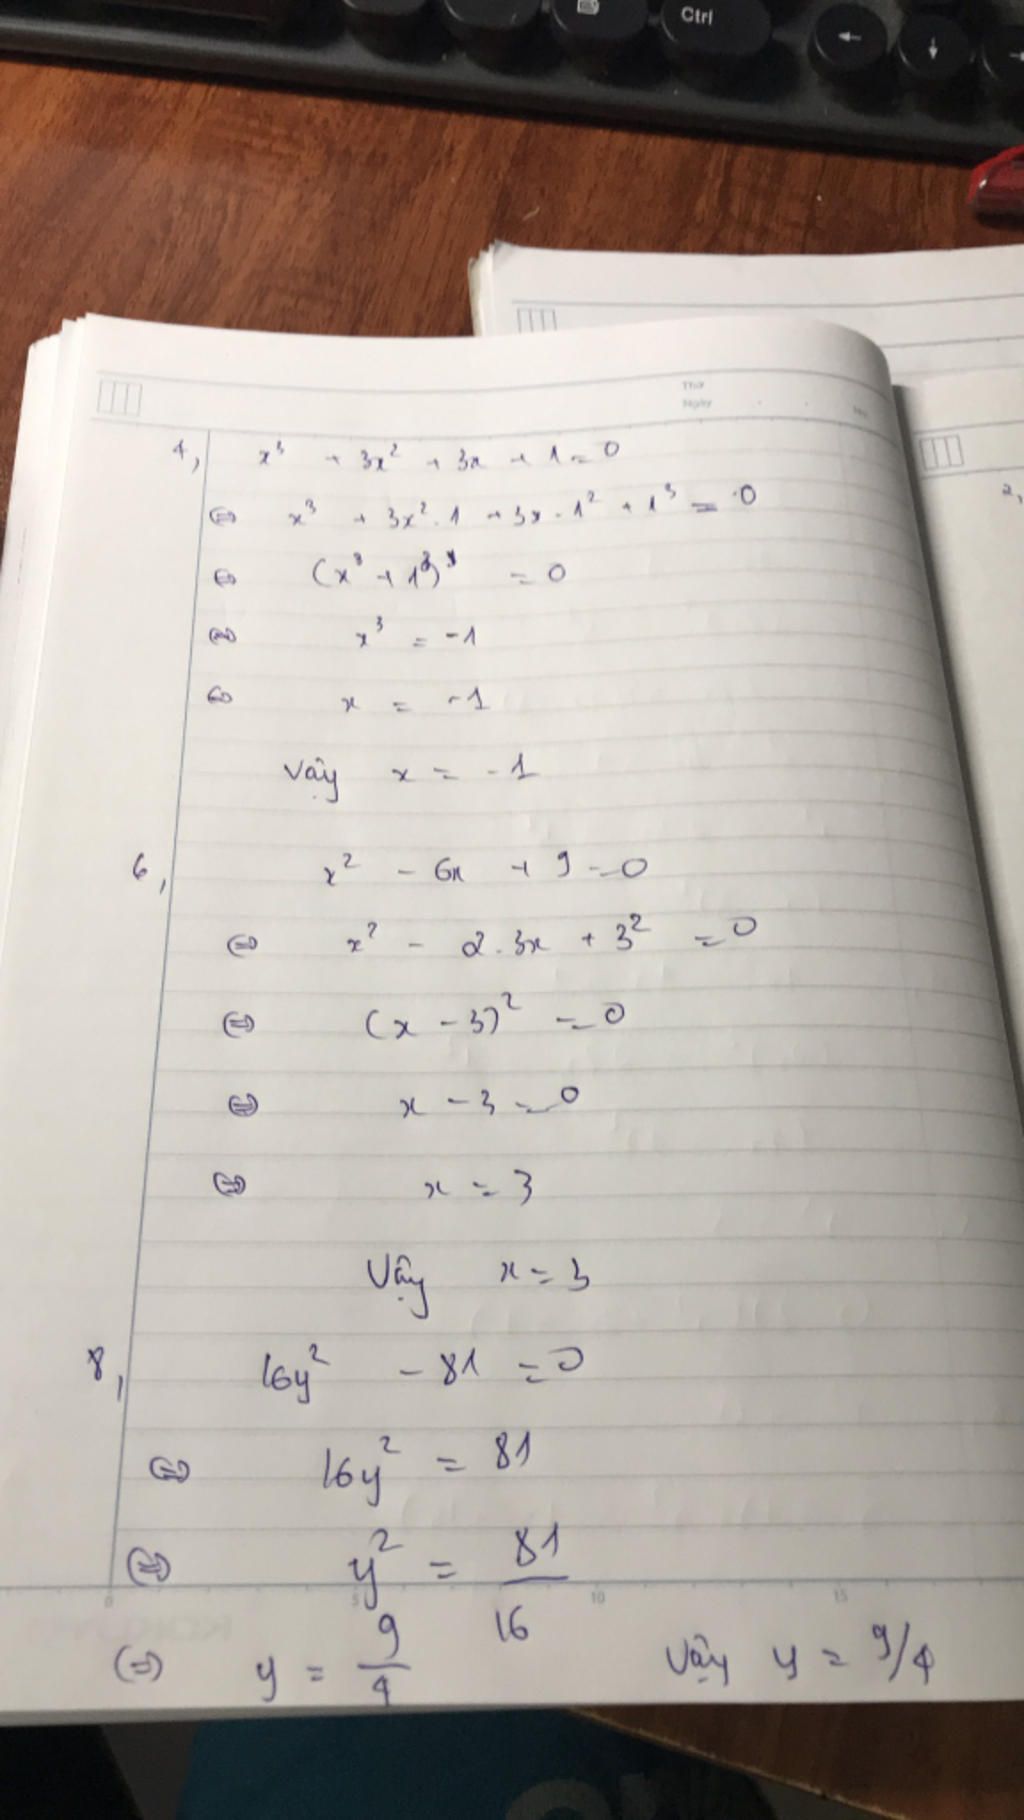 Ctrl
Thứ
Ngày
No.
4, x³ + 3x² + 3x + 1 = 0
⇔ x³ + 3x².1 + 3x.1² + 1³ = 0
⇔ (x³ + 1³)³ = 0
⇔ x³ = -1
⇔ x = -1
Vậy x = -1
6, x² - 6x + 9 = 0
⇔ x² - 2.3x + 3² = 0
⇔ (x - 3)² = 0
⇔ x - 3 = 0
⇔ x = 3
Vậy x = 3
8, 16y² - 81 = 0
⇔ 16y² = 81
⇔ y² = 81/16
0 5 10 15
⇔ y = 9/4 Vậy y = 9/4
2,